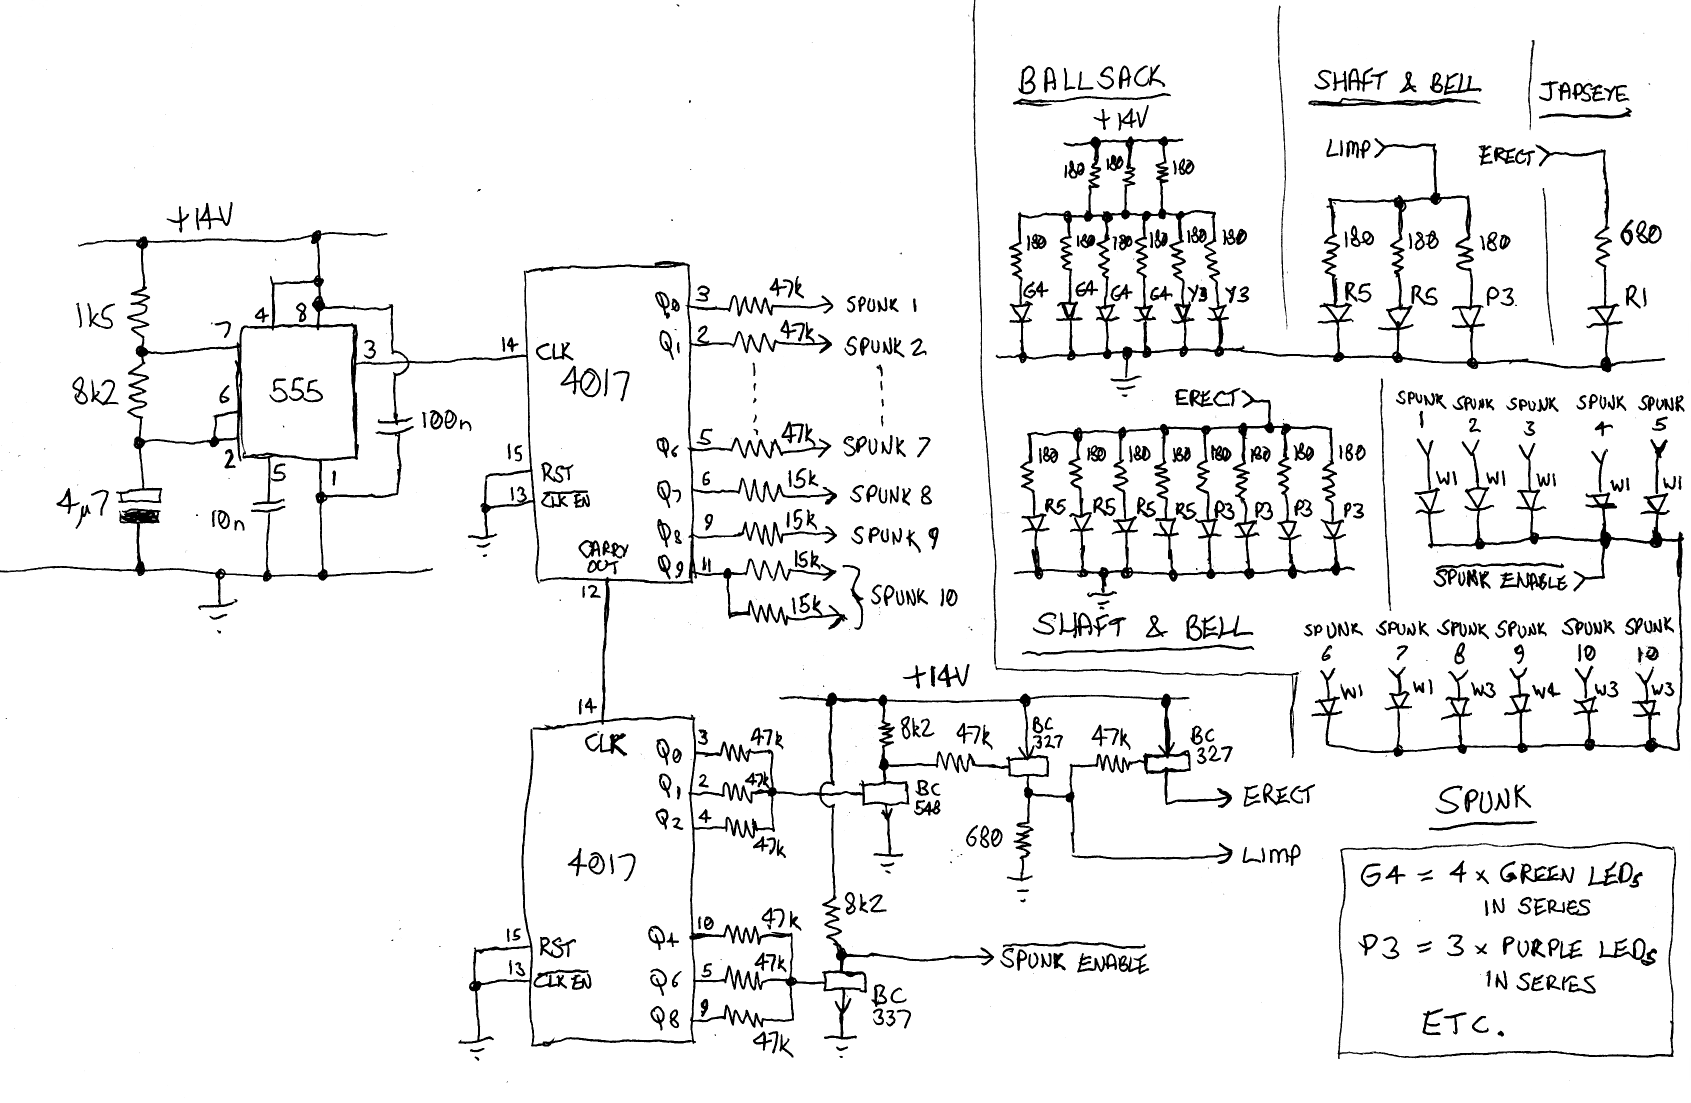 +14V
1k5
8k2
4µ7
7
6
2
4
8
3
555
5
1
10n
100n
14
CLK
4017
15
RST
13
CLK EN
CARRY
OUT
12
Q0 3 47k SPUNK 1
Q1 2 47k SPUNK 2
Q6 5 47k SPUNK 7
Q7 6 15k SPUNK 8
Q8 9 15k SPUNK 9
Q9 11 15k
15k
SPUNK 10
14
CLK
4017
15
RST
13
CLK EN
Q0 3 47k
Q1 2 47k
Q2 4 47k
Q4 10 47k
Q6 5 47k
Q8 9 47k
+14V
8k2
47k
BC
327
47k
BC
327
BC
548
680
ERECT
LIMP
8k2
SPUNK ENABLE
BC
337
BALLSACK
+14V
180 180 180
180 180 180 180 180 180
G4 G4 G4 G4 Y3 Y3
SHAFT & BELL
LIMP
180 180 180
R5 R5 P3
JAPSEYE
ERECT
680
R1
ERECT
180 180 180 180 180 180 180 180
R5 R5 R5 R5 P3 P3 P3 P3
SHAFT & BELL
SPUNK SPUNK SPUNK SPUNK SPUNK
1 2 3 4 5
W1 W1 W1 W1 W1
SPUNK ENABLE
SPUNK SPUNK SPUNK SPUNK SPUNK SPUNK
6 7 8 9 10 10
W1 W1 W3 W4 W3 W3
SPUNK
G4 = 4 x GREEN LEDs
IN SERIES
P3 = 3 x PURPLE LEDs
IN SERIES
ETC.